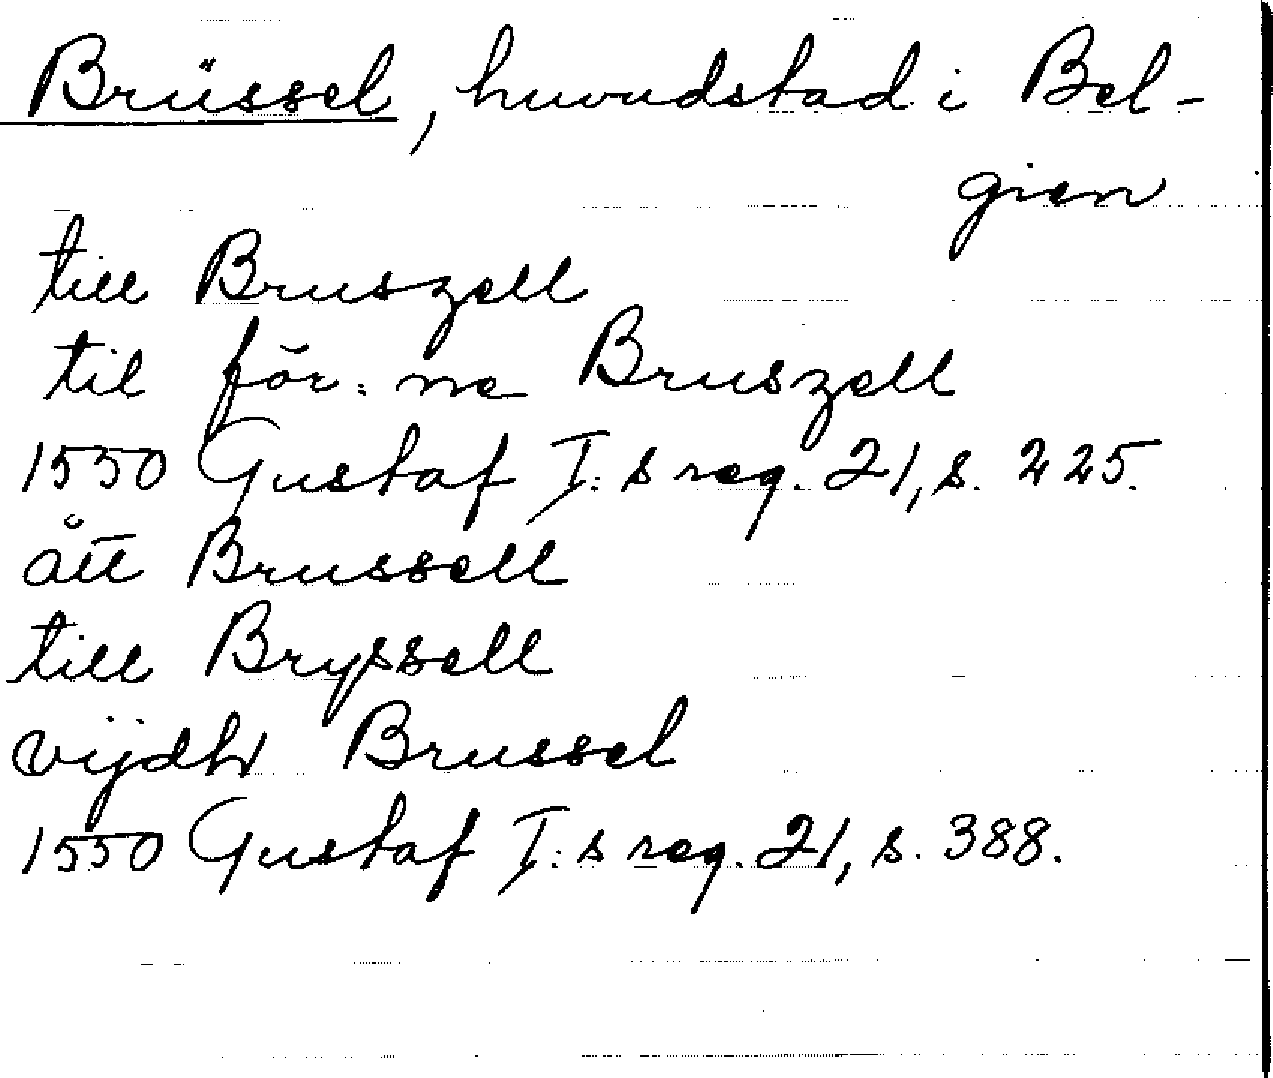 Brüssel, huvudstad i Bel-
gien
till Bruszell
til för:ne Bruszell
1550 Gustaf I:s reg. 21, s. 225.
ått Brussell
till Bryssell
vijdh Brussel
1550 Gustaf I:s reg. 21, s. 388.